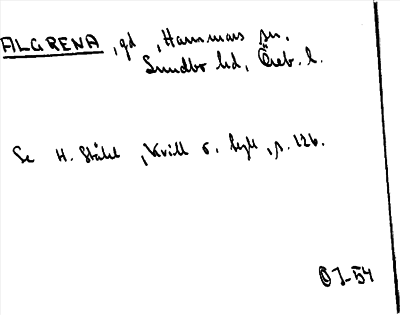 ALGRENA, gd, Hammars sn,
Sundbo hd, Öreb. l.
Se H. Ståhl, Kvill o. byll, s. 126.
OJ-54